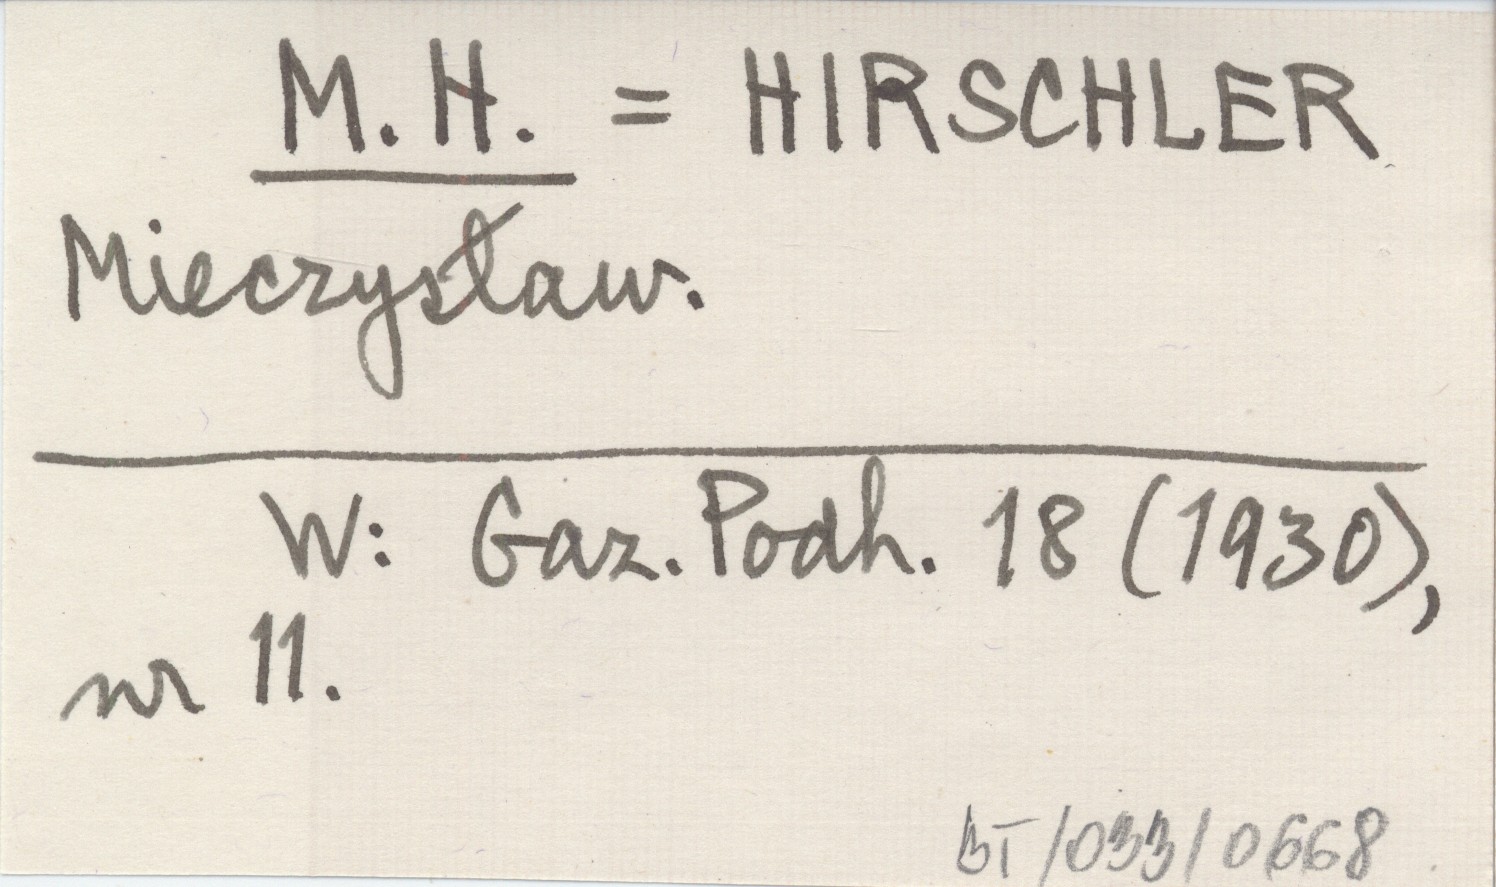 M.H. = HIRSCHLER
Mieczysław.
W: Gaz. Podh. 18 (1930),
nr 11.
BT/033/0668